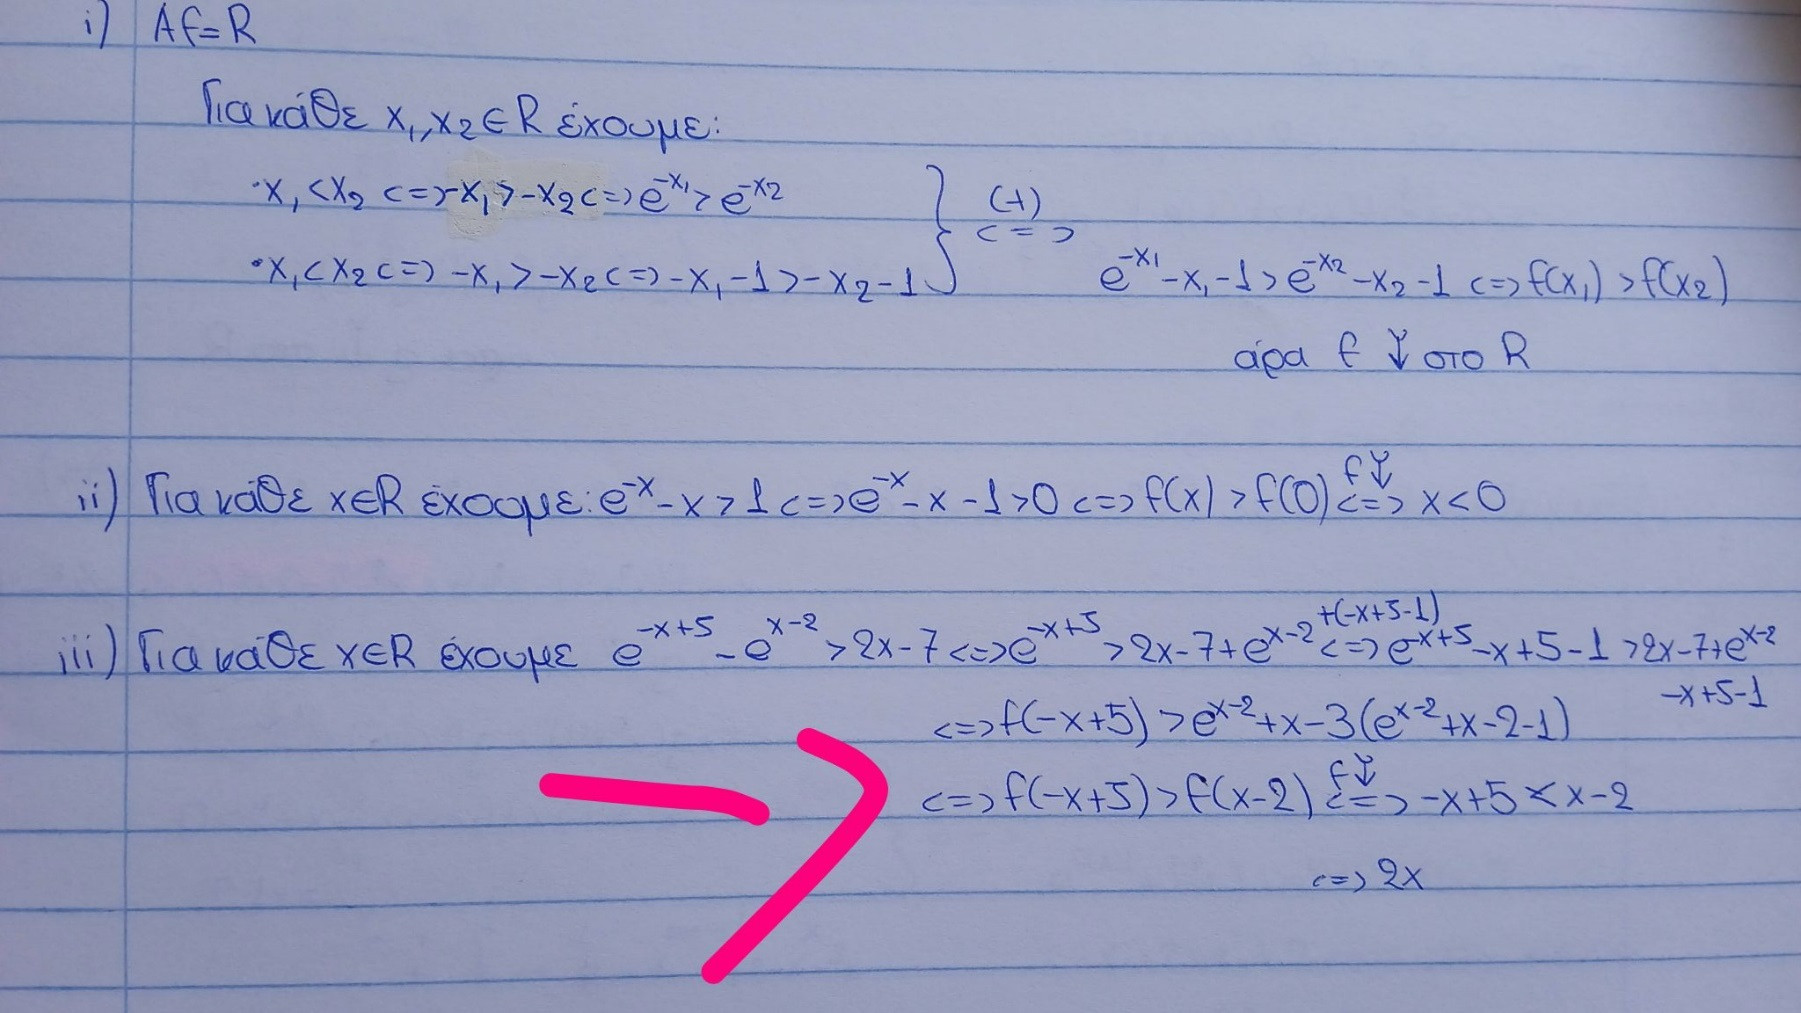 i) Af=R
Για κάθε x₁,x₂∈R έχουμε:
·x₁<x₂ <=>-x₁>-x₂<=>e^{-x₁}>e^{-x₂}
·x₁<x₂<=>-x₁>-x₂<=>-x₁-1>-x₂-1 } (+) <=>
e^{-x₁}-x₁-1>e^{-x₂}-x₂-1 <=>f(x₁)>f(x₂)
άρα f ↓ στο R
ii) Για κάθε x∈R έχουμε: e^{-x}-x>1<=>e^{-x}-x-1>0<=>f(x)>f(0) f↓ <=> x<0
iii) Για κάθε x∈R έχουμε e^{-x+5}-e^{x-2}>2x-7<=>e^{-x+5}>2x-7+e^{x-2} +(-x+5-1) <=> e^{-x+5}-x+5-1>2x-7+e^{x-2}
-x+5-1
<=>f(-x+5)>e^{x-2}+x-3(e^{x-2}+x-2-1)
<=>f(-x+5)>f(x-2) f↓ <=> -x+5<x-2
<=>2x